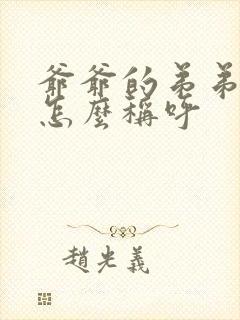 爺爺的弟弟
怎麼稱呼
趙光義